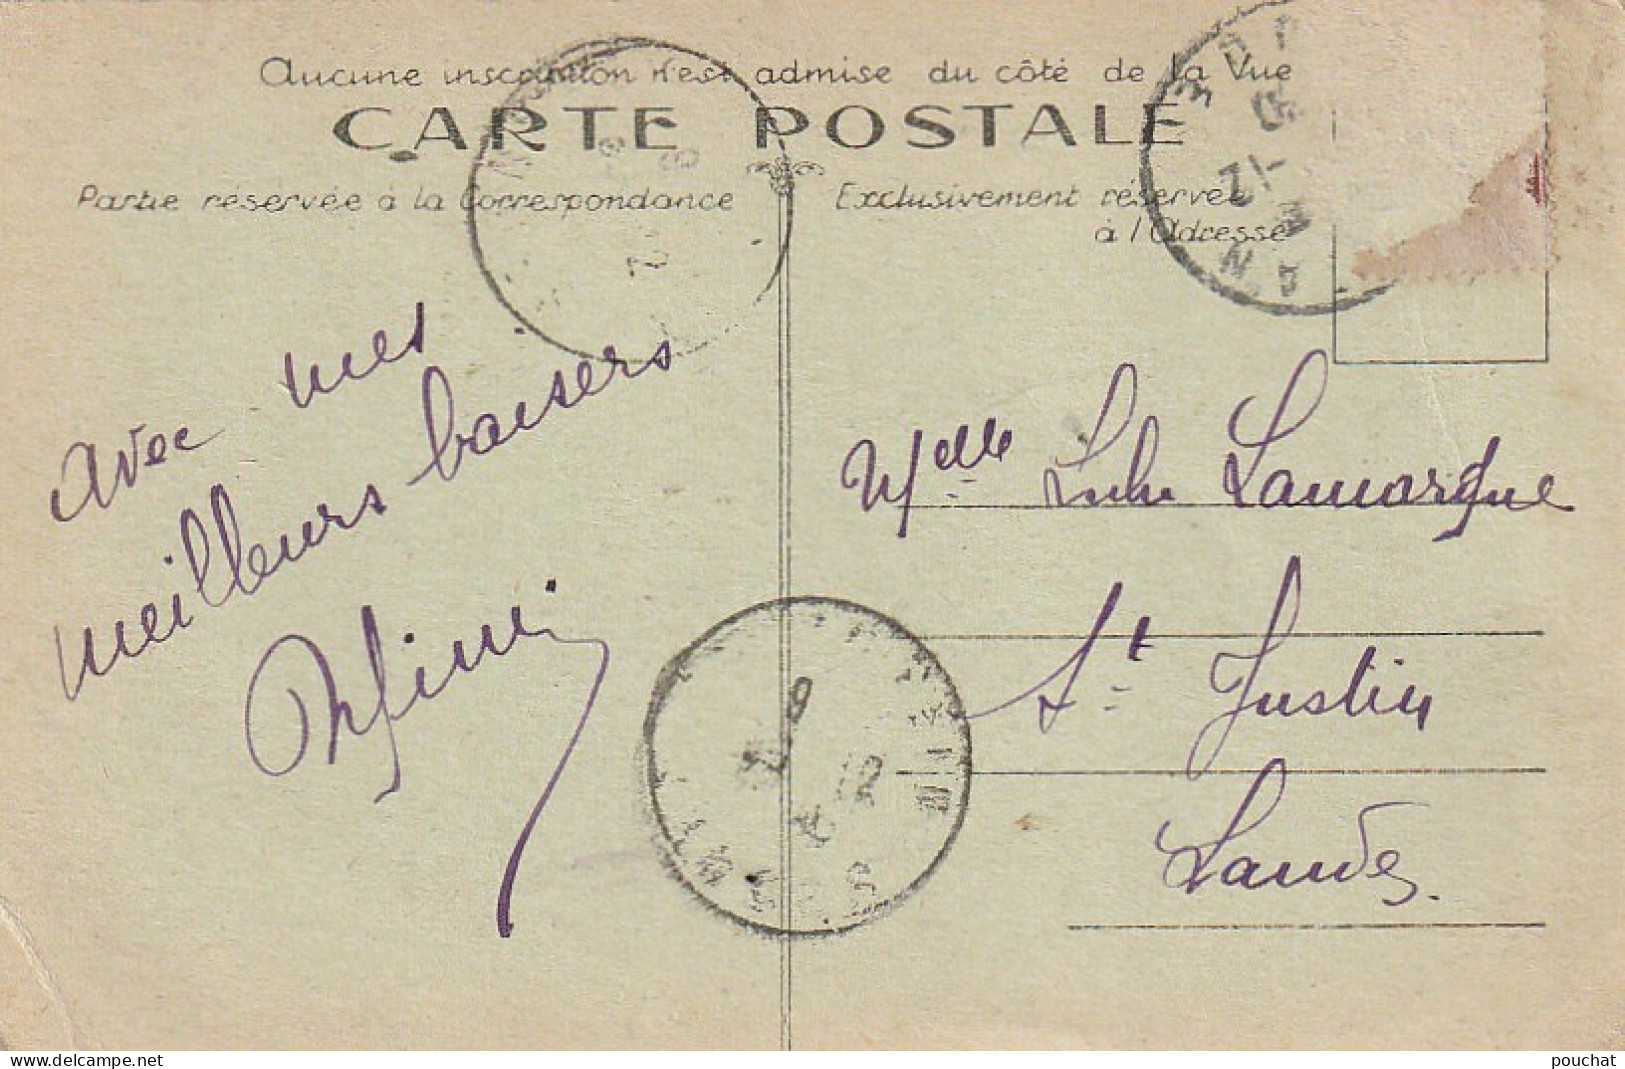 Aucune inscription n'est admise du côté de la Vue
CARTE POSTALE
Partie réservée à la Correspondance
Exclusivement réservée
à l'Adresse
avec mes
meilleurs baisers
Melle Lulu Lamarque
St Justin
Landes.
www.delcampe.net
pouchat